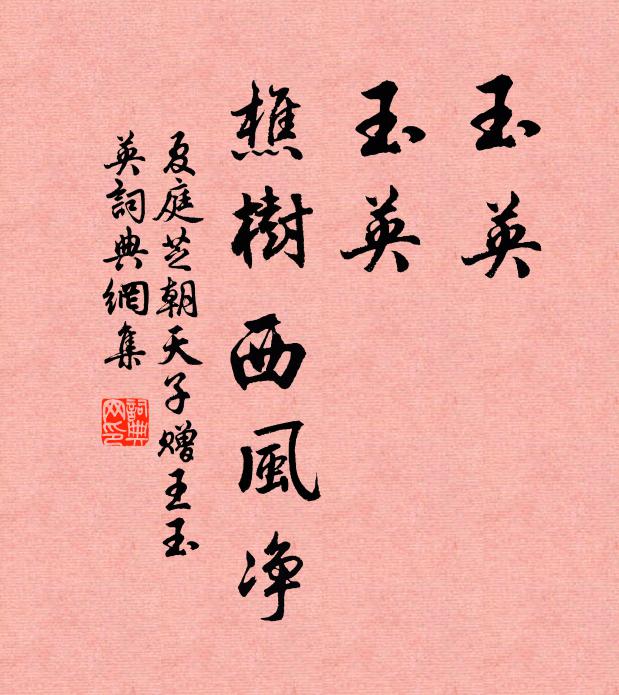 玉英
玉英
樵樹西風净
夏庭芝朝天子贈王玉
英詞典網集
詞典
网印